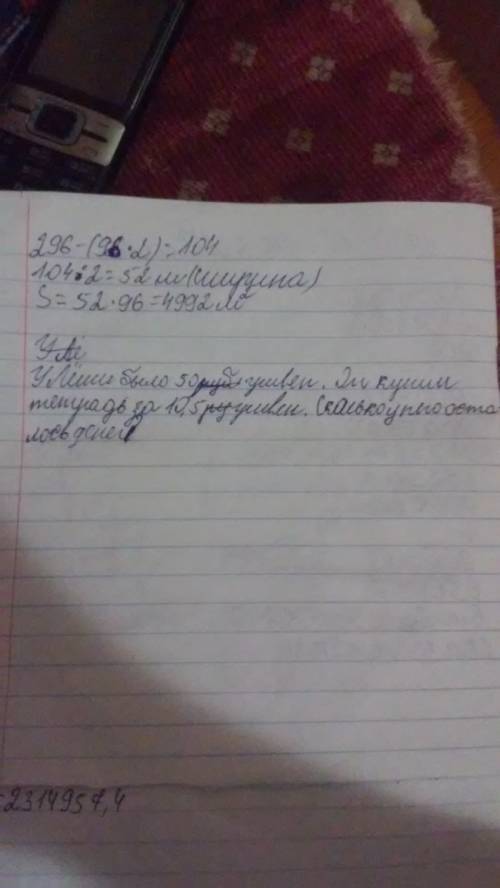 296-(96·2)=104
104:2=52 м (ширина)
S=52·96=4992 м²
У Лё
У Лёши было 50 руб гривен. Он купил
тетрадь за 10,5 ру гривен. Сколько у него оста
лось денег?
=2314957,4